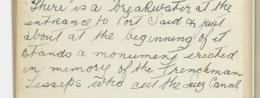 There is a breakwater at the
entrance to Port Said & just
about at the beginning of it
stands a monument erected
in memory of the Frenchman
Lesseps who cut the Suez Canal